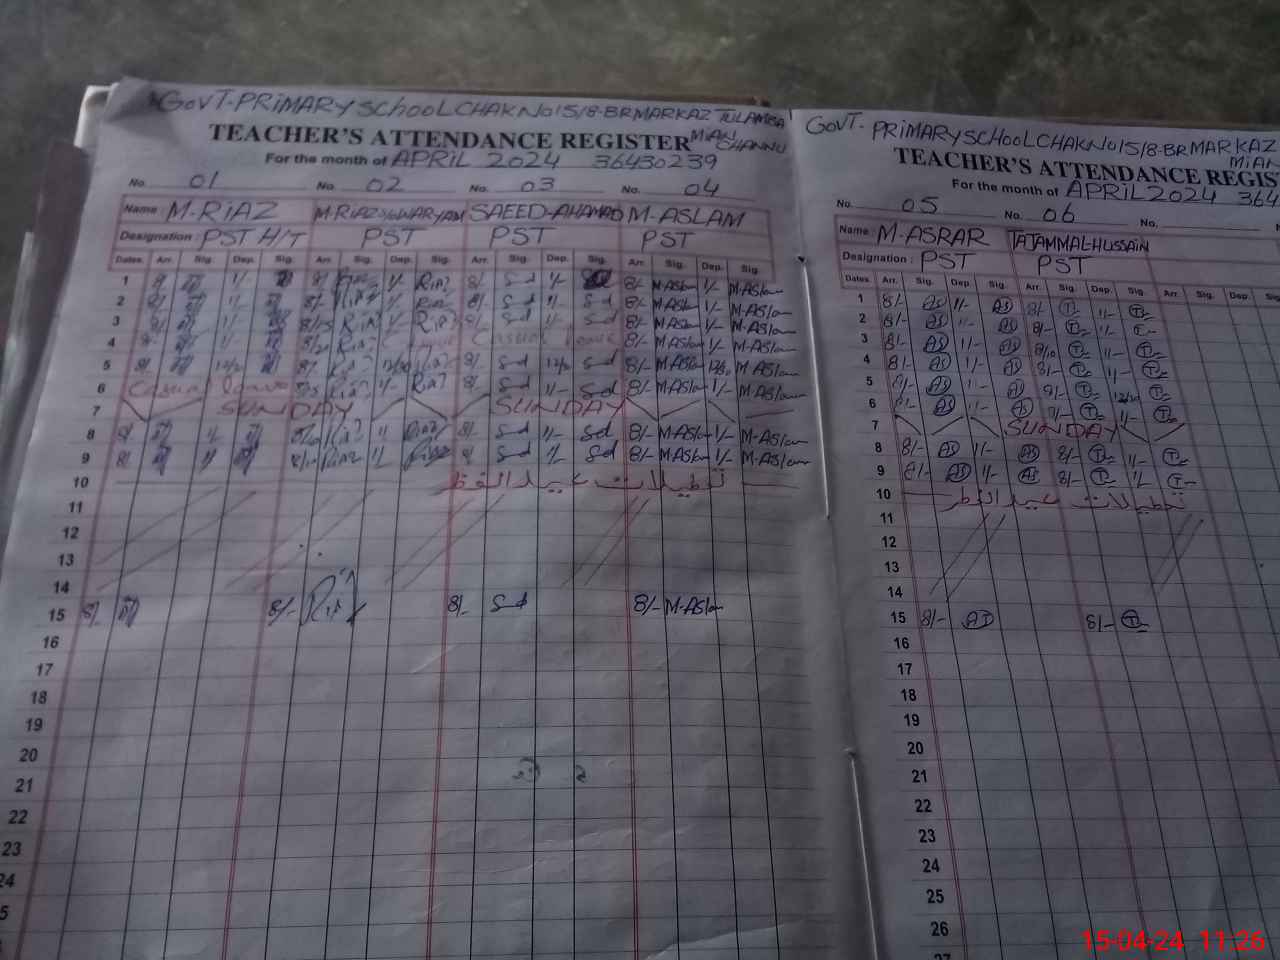 GOVT-PRIMARY SCHOOL CHAK No 15/8-BR MARKAZ TULAMBA
MIAN CHANNU
TEACHER'S ATTENDANCE REGISTER
For the month of APRIL 2024 36430239
No. 01 No. 02 No. 03 No. 04
Name: M-RIAZ M-RIAZ WARYAM SAEED-AHAMAD M-ASLAM
Designation: PST H/T PST PST PST
Dates. Arr. Sig. Dep. Sig. Arr. Sig. Dep. Sig. Arr. Sig. Dep. Sig. Arr. Sig. Dep. Sig.
1 8/- 1/- 8/- Riaz 1/- Riaz 8/- Sd 1/- Sd 8/- M-Aslam 1/- M-Aslam
2 8/- 1/- 8/- Riaz 1/- Riaz 8/- Sd 1/- Sd 8/- M-Aslam 1/- M-Aslam
3 8/- 1/- 8/15 Riaz 1/- Riaz 8/- Sd 1/- Sd 8/- M-Aslam 1/- M-Aslam
4 8/- 1/- 8/20 Riaz Casual Leave 8/- M-Aslam 1/- M-Aslam
5 8/- 8/- Riaz 8/- Sd Sd 8/- M-Aslam M-Aslam
6 Casual Leave Riaz 1/- Riaz 8/- Sd 1/- Sd 8/- M-Aslam 1/- M-Aslam
7 SUNDAY SUNDAY
8 8/- 1/- Riaz 1/- Riaz 8/- Sd 1/- Sd 8/- M-Aslam 1/- M-Aslam
9 8/- 1/- Riaz 1/- Riaz 8/- Sd 1/- Sd 8/- M-Aslam 1/- M-Aslam
10 تعطیلات عید الفطر
11
12
13
14
15 8/- 8/- Riaz 8/- Sd 8/- M-Aslam
16
17
18
19
20
21
22
23
24
GOVT- PRIMARY SCHOOL CHAK No 15/8-BR MARKAZ
MIAN
TEACHER'S ATTENDANCE REGIS
For the month of APRIL 2024 364
No. 05 No. 06 No.
Name: M-ASRAR TAJAMMAL-HUSSAIN
Designation: PST PST
Dates. Arr. Sig. Dep. Sig. Arr. Sig. Dep. Sig. Arr. Sig. Dep. Sig.
1 8/- AS 1/- AS 8/- T 1/- T
2 8/- AS 1/- AS 8/- T 1/- T
3 8/- AS 1/- AS 8/10 T 1/- T
4 8/- AS 1/- AS 8/- T 1/- T
5 8/- AS 1/- AS 8/- T T
6 8/- AS 1/- AS 8/- T 1/- T
7 SUNDAY
8 8/- AS 1/- AS 8/- T 1/- T
9 8/- AS 1/- AS 8/- T 1/- T
10 تعطیلات عید الفطر
11
12
13
14
15 8/- AS 8/- T
16
17
18
19
20
21
22
23
24
25
26
27
15-04-24 11:26